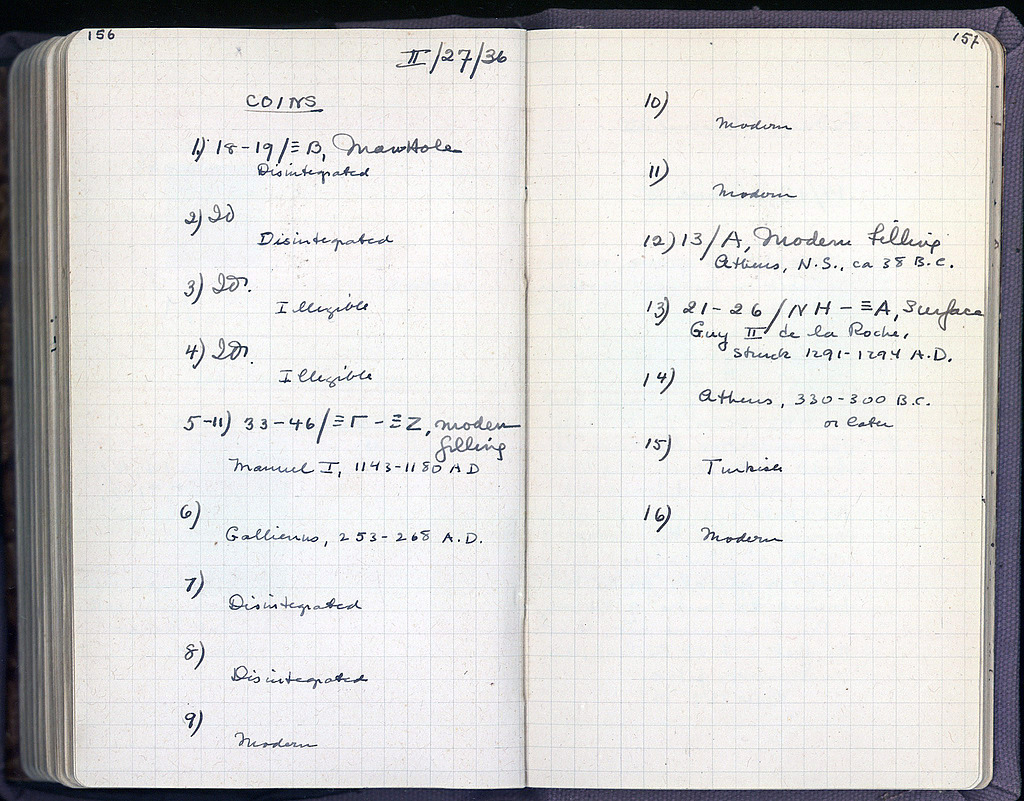 156
II/27/36
COINS
1) 18-19/ΞB, Manhole
Disintegrated
2) Id
Disintegrated
3) Id.
Illegible
4) Id.
Illegible
5-11) 33-46/ΞΓ-ΞZ, modern
filling
Manuel I, 1143-1180 AD
6)
Gallienus, 253-268 A.D.
7)
Disintegrated
8)
Disintegrated
9)
Modern
157
10)
Modern
11)
Modern
12) 13/A, Modern filling
Athens, N.S., ca 38 B.C.
13) 21-26/NH-ΞA, Surface
Guy II de la Roche,
Struck 1291-1294 A.D.
14)
Athens, 330-300 B.C.
or later
15)
Turkish
16)
Modern